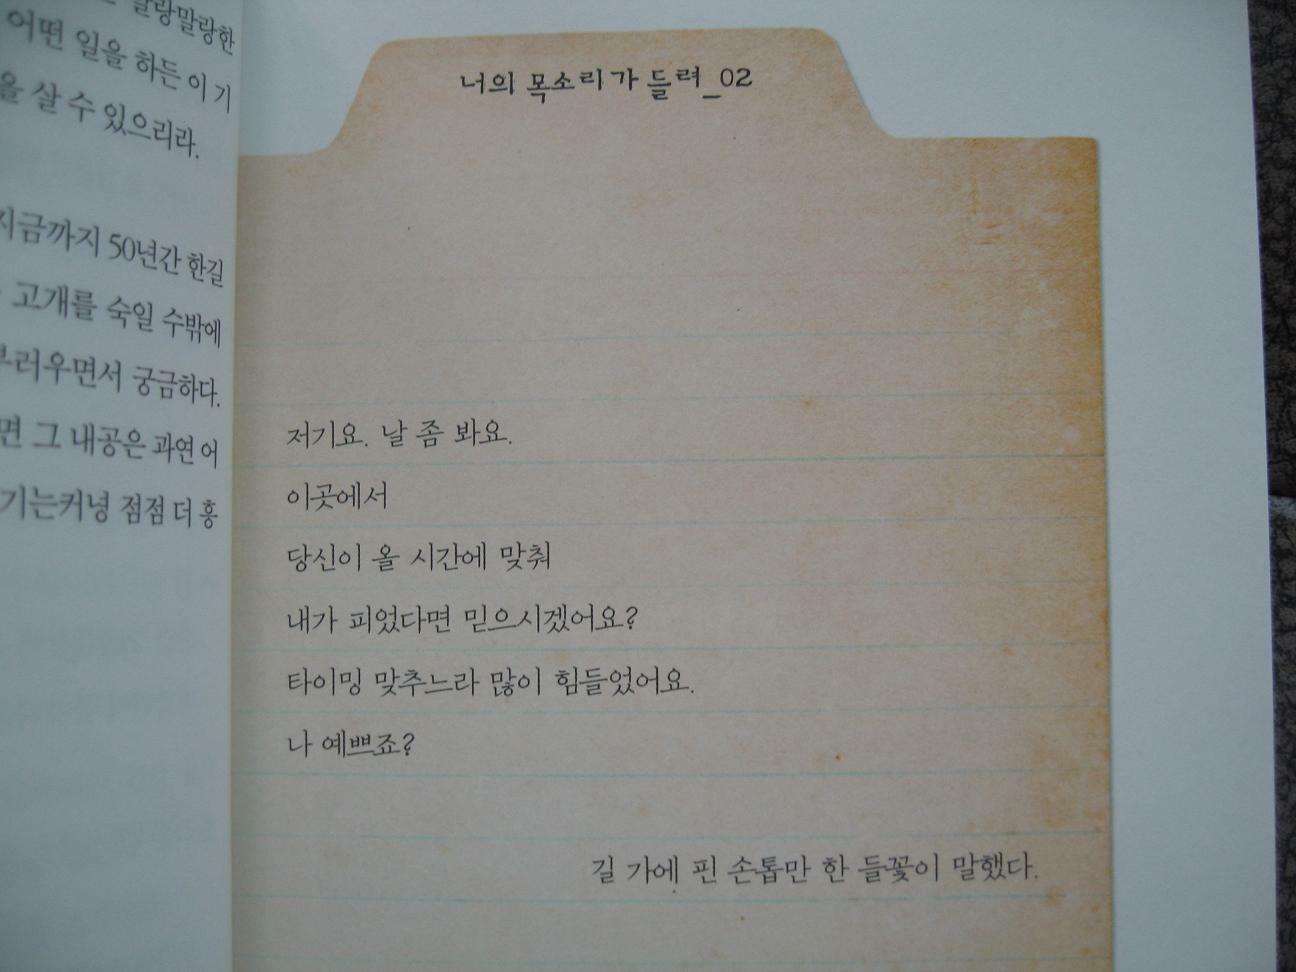 말랑말랑한
어떤 일을 하든 이 기
을 살 수 있으리라.
지금까지 50년간 한길
고개를 숙일 수밖에
부러우면서 궁금하다.
면 그 내공은 과연 어
기는커녕 점점 더 흥
너의 목소리가 들려_02
저기요. 날 좀 봐요.
이곳에서
당신이 올 시간에 맞춰
내가 피었다면 믿으시겠어요?
타이밍 맞추느라 많이 힘들었어요.
나 예쁘죠?
길 가에 핀 손톱만 한 들꽃이 말했다.